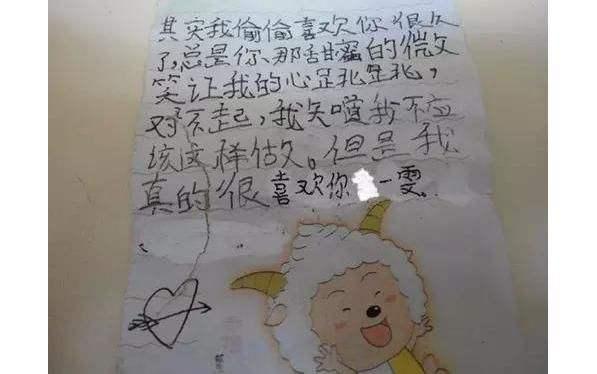 其实我偷偷喜欢你很久
了,总是你那甜蜜的微
笑让我的心
对不起,我知道我不应
该这样做。但是我
真的很喜欢你 一雯。